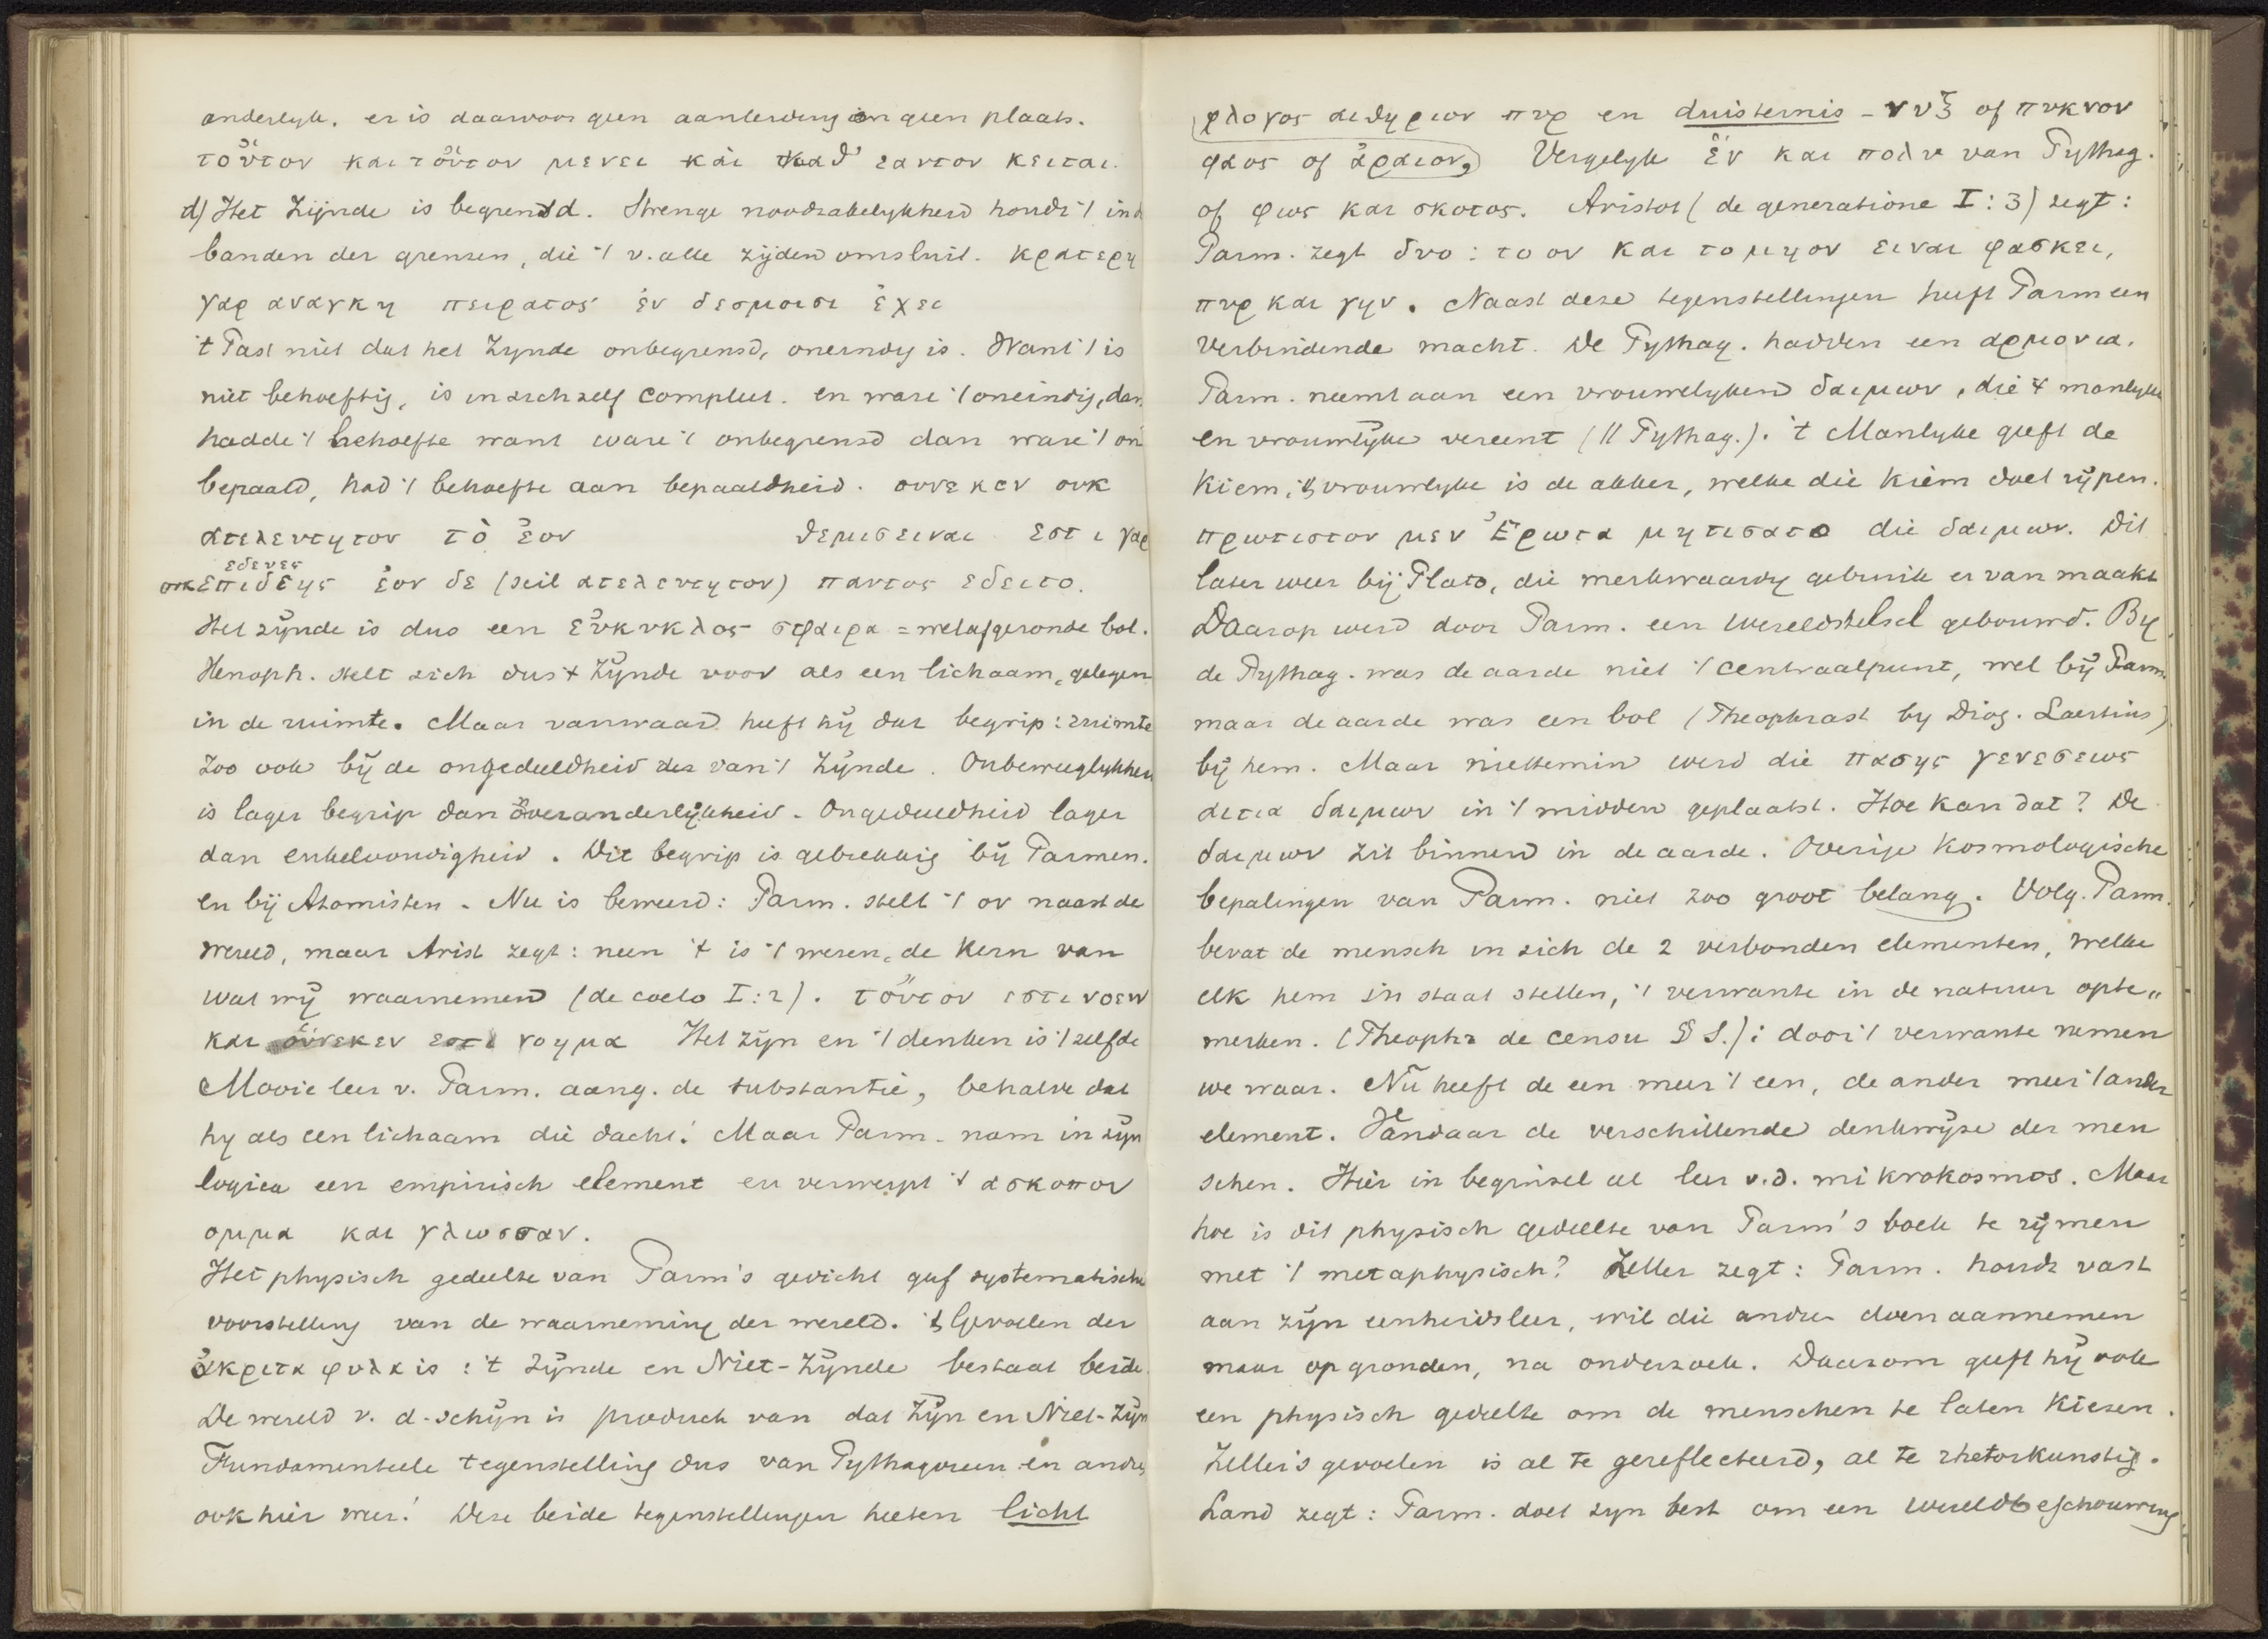 anderlyk. er is daarvoor geen aanleiding en geen plaats.
τοὔτον και τοὔτον μενει καὶ καθ' εαυτον κειται.
d) Het Zijnde is begrensd. Strenge noodzakelykheid houdt 't in d
banden der grenzen, die 't v. alle zijden omsluit. κρατερη
γαρ αναγκη πειρατος ἐν δεσμοισι ἐχει
't Past niet dat het Zynde onbegrensd, oneindig is. Want 't is
niet behoeftig, is in zich zelf compleet. en ware 't oneindig, dan
hadde 't behoefte want ware 't onbegrensd dan ware 't on
bepaald, had 't behoefte aan bepaaldheid. ουνεκεν ουκ
ατελευτητον τὸ ἐον θεμις ειναι εστι γαρ
εδενες
ουκ επιδεης ἐον δε (scil ατελευτητον) παντος εδειτο.
Het zÿnde is dus een εὐκυκλος σφαιρα = welafgeronde bol.
Xenoph. stelt zich dus 't Zÿnde voor als een lichaam, gelegen
in de ruimte. Maar vanwaar heeft hÿ dat begrip: ruimte
Zoo ook bÿ de ongedeeldheid des van 't Zÿnde. Onbeweeglykheid
is lager begrip dan onveranderlÿkheid. Ongedeeldheid lager
dan enkelvoudigheid. Dit begrip is gebrekkig bÿ Parmen.
en bij Atomisten. Nu is beweerd: Parm. stelt 't ον naast de
wereld, maar Arist zegt: neen 't is 't wezen, de Kern van
wat wÿ waarnemen (de coelo I:2). τοὔτον εστι νοειν
και οὑνεκεν εστι νοημα Het zÿn en 't denken is 't zelfde
Mooie leer v. Parm. aang. de substantie, behalve dat
hy als een lichaam die dacht! Maar Parm. nam in zÿn
logica een empirisch element en verwerpt 't ασκοπον
ομμα και γλωσσαν.
Het physisch gedeelte van Parm's gedicht gaf systematische
voorstelling van de waarneming der wereld. 't Gevoelen der
ἀκριτα φυλα is: 't Zÿnde en Niet-Zÿnde bestaat beide.
De wereld v. d. schÿn is product van dat Zÿn en Niet-Zÿn
Fundamenteele tegenstelling dus van Pythagoreeen en andre
ook hier weer! Deze beide tegenstellingen heeten licht
φλογος αιθηριον πυρ en duisternis - νυξ of πυκνον
φαος of ἀραιον, Vergelyk ἑν και πολυ van Pythag.
of φως και σκοτος. Aristot (de generatione I:3) zegt:
Parm. zegt δυο: το ον και το μη ον ειναι φασκει,
πυρ και γην. Naast deze tegenstellingen heeft Parm een
verbindende macht. De Pythag. hadden een αρμονια.
Parm. neemt aan een vrouwelyken δαιμων, die 't manlyke
en vrouwlÿke vereent (// Pythag.). 't Manlyke geeft de
Kiem, 't vrouwlyke is de akker, welke die Kiem doet rÿpen.
πρωτιστον μεν Ἐρωτα μητισατο die δαιμων. Dit
later weer bij Plato, die merkwaardig gebruik er van maakt
Daarop werd door Parm. een wereldstelsel gebouwd. By
de Pythag. was de aarde niet 't centraalpunt, wel bÿ Parm.
maar de aarde was een bol (Theophrast by Diog. Laertius)
bÿ hem. Maar niettemin werd die πασης γενεσεως
αιτια δαιμων in 't midden geplaatst. Hoe kan dat? De
δαιμων zit binnen in de aarde. Overige Kosmologische
bepalingen van Parm. niet zoo groot belang. Volg. Parm.
bevat de mensch in zich de 2 verbonden elementen, welke
elk hem in staat stellen, 't verwante in de natuur opte„
merken. (Theophr de censu § S.): door 't verwante nemen
we waar. Nu heeft de een meer 't een, de ander meer 't ander
element. Vandaar de verschillende denkwÿze der men
schen. Hier in beginsel al leer v.d. mikrokosmos. Maar
hoe is dit physisch gedeelte van Parm's boek te rÿmen
met 't metaphysisch? Zeller zegt: Parm. houdt vast
aan zÿn eenheidsleer, wil die andre doen aannemen
maar op gronden, na onderzoek. Daarom geeft hÿ ook
een physisch gedeelte om de menschen te laten Kiezen.
Zeller's gevoelen is al te gereflecteerd, al te rhetorkunstig.
Land zegt: Parm. doet zyn best om een wereldbeschouwing